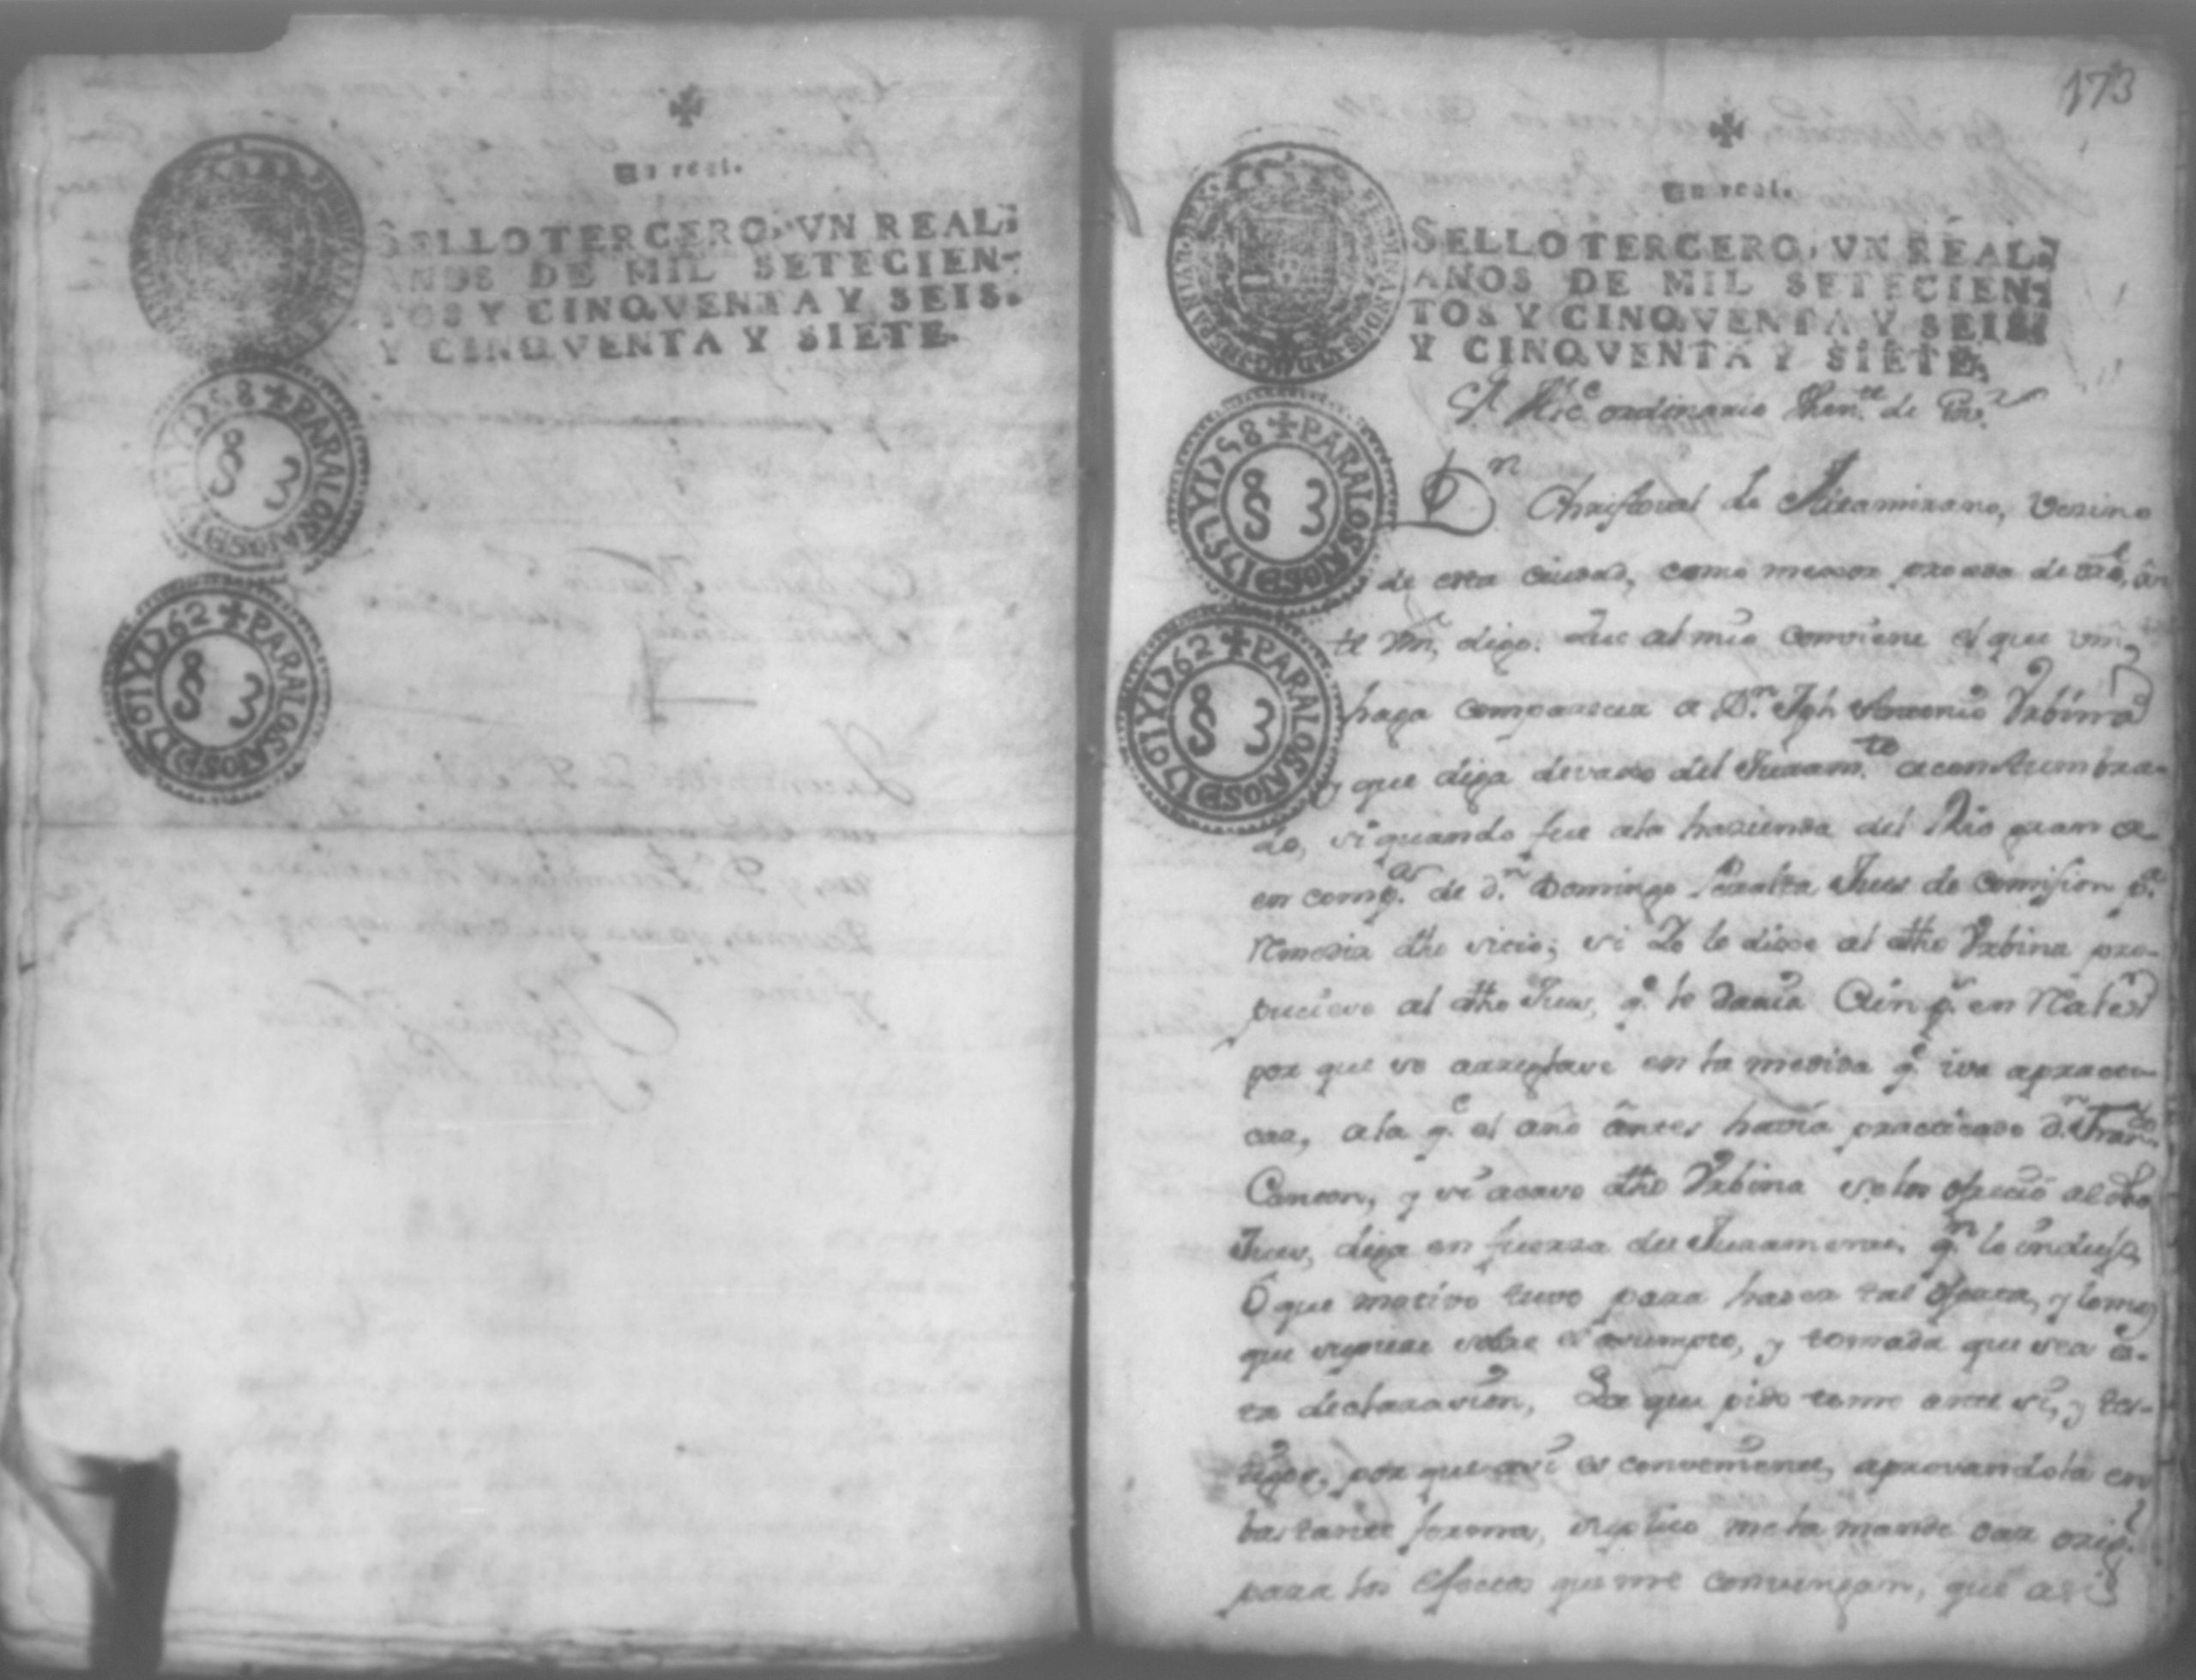 Un real.
SELLO TERCERO, VN REAL,
AÑOS DE MIL SETECIEN-
TOS Y CINQVENTA Y SEIS.
Y CINQVENTA Y SIETE.
Y1758 ✠ PARALOSAÑOSDE1757
8 3
PARALOSAÑOSDE1761Y1762 ✠
8 3
173
Un real.
SELLO TERCERO, VN REAL,
AÑOS DE MIL SETECIEN-
TOS Y CINQVENTA Y SEIS
Y CINQVENTA Y SIETE.
PARALOSAÑOSDE1757Y1758 ✠
8 3
PARALOSAÑOSDE1761Y1762 ✠
8 3
Sr. Alce ordinario Thente de
Dn Christoval de Altamirano, Vezino
de esta Ciudad, como mexor proceda de
te Vm, digo: Que al mio comviene el que Vm,
haga comparecer a Dn. Jph Antonio Vrbina
y que diga devaxo del Juramto acostumbra-
do, si quando fue ala hazienda del Rio
en compa. de dn. Domingo Peralta Juez de Comision pa.
Remedir dho sicio; si Io le dixe al dho Vrbina pro-
pusiese al dho Juez, qe. le daria Cien ps. en Rales
por que se arreglase en la medida qe iva apracti-
car, ala qe el año antes havia practicado dn. Franco
Canton, y si acaso dho Vrbina se los ofrecio al dho
Juez, diga en fuerza del Juramento, qn. le induxo,
ó que motivo tuvo para hazer tal oferta, y lo mas
que supiere sobre el asumpto, y tomada que sea es-
ta declarasion, La que pido tome ante si, y tes-
tigos, por que asi es conveniente, aprovandola en
bastante forma, suplico mela mande dar origl.
para los efectos que me convengan, que asi